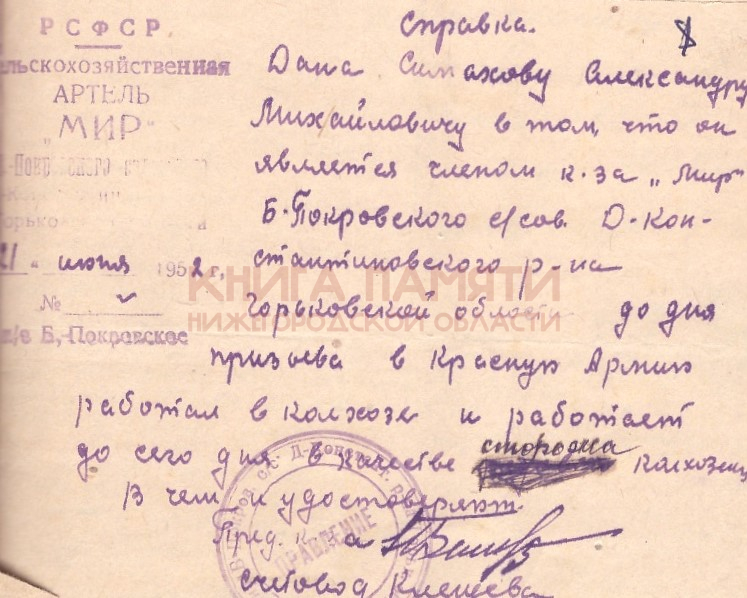 РСФСР
сельскохозяйственная
АРТЕЛЬ
„МИР"
21 " июня 1952 г,
№
п/о Б,-Покровское
Справка.
Дана Симахову Александру
Михайловичу в том, что он
является членом к-за „Мир"
Б-Покровского с/сов. Д-Кон-
стантиновского р-на
Горьковской области до дня
призыва в Красную Армию
работал в колхозе и работает
до сего дня в качестве сторожа
В чем и удостоверяют.
Пред. к-за
Счетовод Клешева
ПРАВЛЕНИЕ
КНИГА ПАМЯТИ
НИЖЕГОРОДСКОЙ ОБЛАСТИ